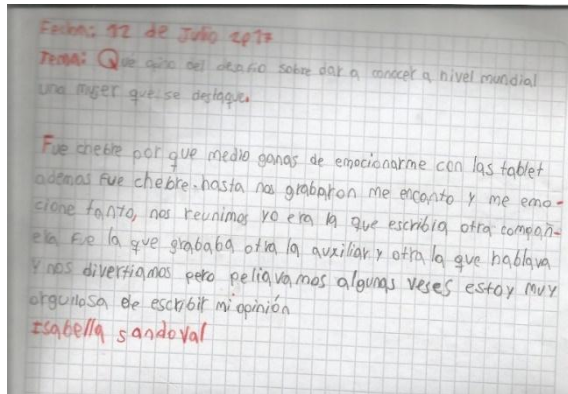 Fecha: 12 de Julio 2017
Tema: Que opino del desafio sobre dar a conocer a nivel mundial
una mujer que se destaque.
Fue chebre por que medio ganas de emocionarme con las tablet
ademas fue chebre. hasta nos grabaron me encanto y me emo-
cione tanto, nos reunimos yo era la que escribia otra compañ-
era fue la que grababa otra la auxiliar y otra la que hablava
y nos divertiamos pero peliavamos algunas veses estoy muy
orgullosa de escribir mi opinión
Isabella sandoval